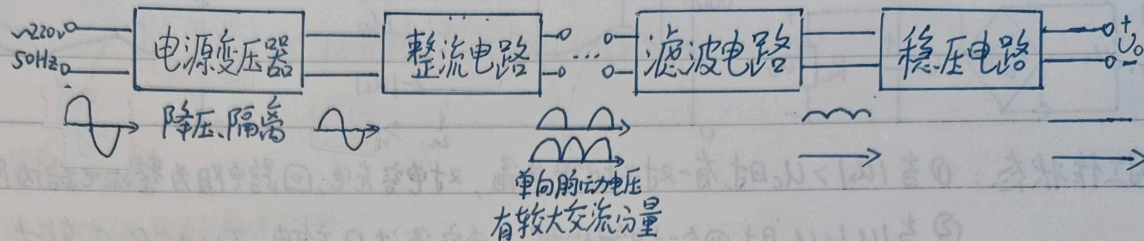 ~220V
50Hz
电源变压器
整流电路
...
滤波电路
稳压电路
+
U₀
-
降压、隔离
单向脉动电压
有较大交流分量